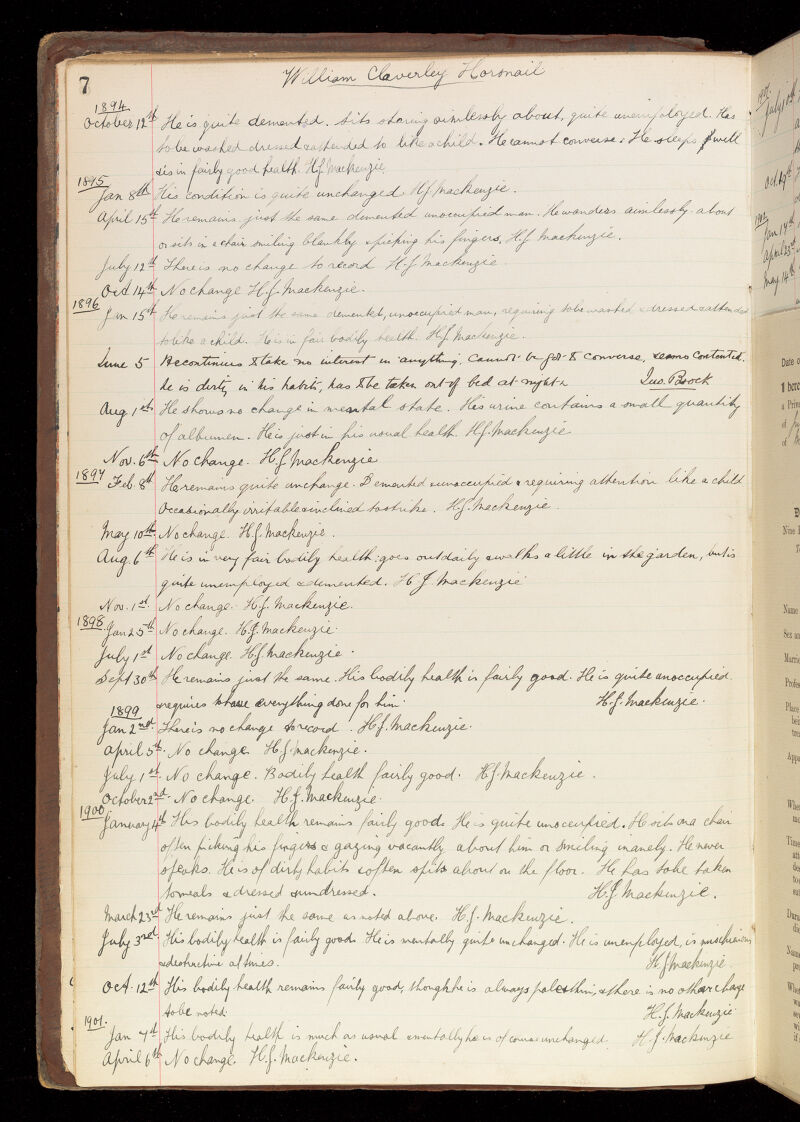 7
William Claverley Horsnail
1894
October 12th He is quite demented. Sits staring aimlessly about, quite unemployed. Has
to be washed dressed & attended to like a child. He cannot converse. He sleeps well
& is in fairly good health. H.J. Mackenzie.
1895
Jan 8th His condition is quite unchanged H.J. Mackenzie.
April 15th He remains just the same demented unoccupied man. He wanders aimlessly about
or sits in a chair smiling blankly & picking his fingers. H.J. Mackenzie.
July 12th There is no change to record H.J. Mackenzie
Oct 14th No change H.J. Mackenzie.
1896
Jan 15th He remains just the same demented, unoccupied man, requiring to be washed & dressed & attended
to like a child. He is in fair bodily health. H.J. Mackenzie.
June 5 He continues to take no interest in anything, cannot be got to converse, seems contented.
He is dirty in his habits, has to be taken out of bed at night. Geo. Brock
Aug 1st He shows no change in mental state. His urine contains a small quantity
of albumen. He is just in his usual health. H.J. Mackenzie
Nov. 6th No change. H.J. Mackenzie
1897
Feb. 8th He remains quite unchange. Demented & unoccupied & requiring attention like a child
Occasionally irritable & inclined to strike. H.J. Mackenzie.
May 10th No change. H.J. Mackenzie.
Aug. 6th He is in very fair bodily health: goes out daily & walks a little in the garden, but is
quite unemployed & demented. H.J. Mackenzie
Nov. 1st. No change. H.J. Mackenzie.
1898
Jan 25th No change. H.J. Mackenzie.
July 1st No change. H.J. Mackenzie.
Sept 30th He remains just the same. His bodily health is fairly good. He is quite unoccupied
& requires to have everything done for him. H.J. Mackenzie.
1899
Jan 2nd. There is no change to record. H.J. Mackenzie.
April 5th. No change. H.J. Mackenzie.
July 1st No change. Bodily health fairly good. H.J. Mackenzie.
October 2nd. No change. H.J. Mackenzie.
1900
January 4th His bodily health remains fairly good. He is quite unoccupied. He sits on a chair
often picking his fingers & gazing vacantly about him or smiling inanely. He never
speaks. He is of dirty habits & often spits about on the floor. He has to be taken
to meals & dressed & undressed. H.J. Mackenzie.
March 23rd He remains just the same as noted above. H.J. Mackenzie.
July 3rd. His bodily health is fairly good. He is mentally quite unchanged. He is unemployed, is mischievous
& destructive at times. H.J. Mackenzie.
Oct. 12th His bodily health remains fairly good, though he is always pale & thin, & there is no other change
to be noted. H.J. Mackenzie.
1901.
Jan 7th His bodily health is much as usual & mentally he is of course unchanged. H.J. Mackenzie
April 6th No change. H.J. Mackenzie.
1901.
July 1st
Oct. 19th
1902
Jan 14th
April 23rd
May 14th
Date o
I here
a Priva
of
of
Nine
Name
Sex an
Marrie
Profes
Place
Appa